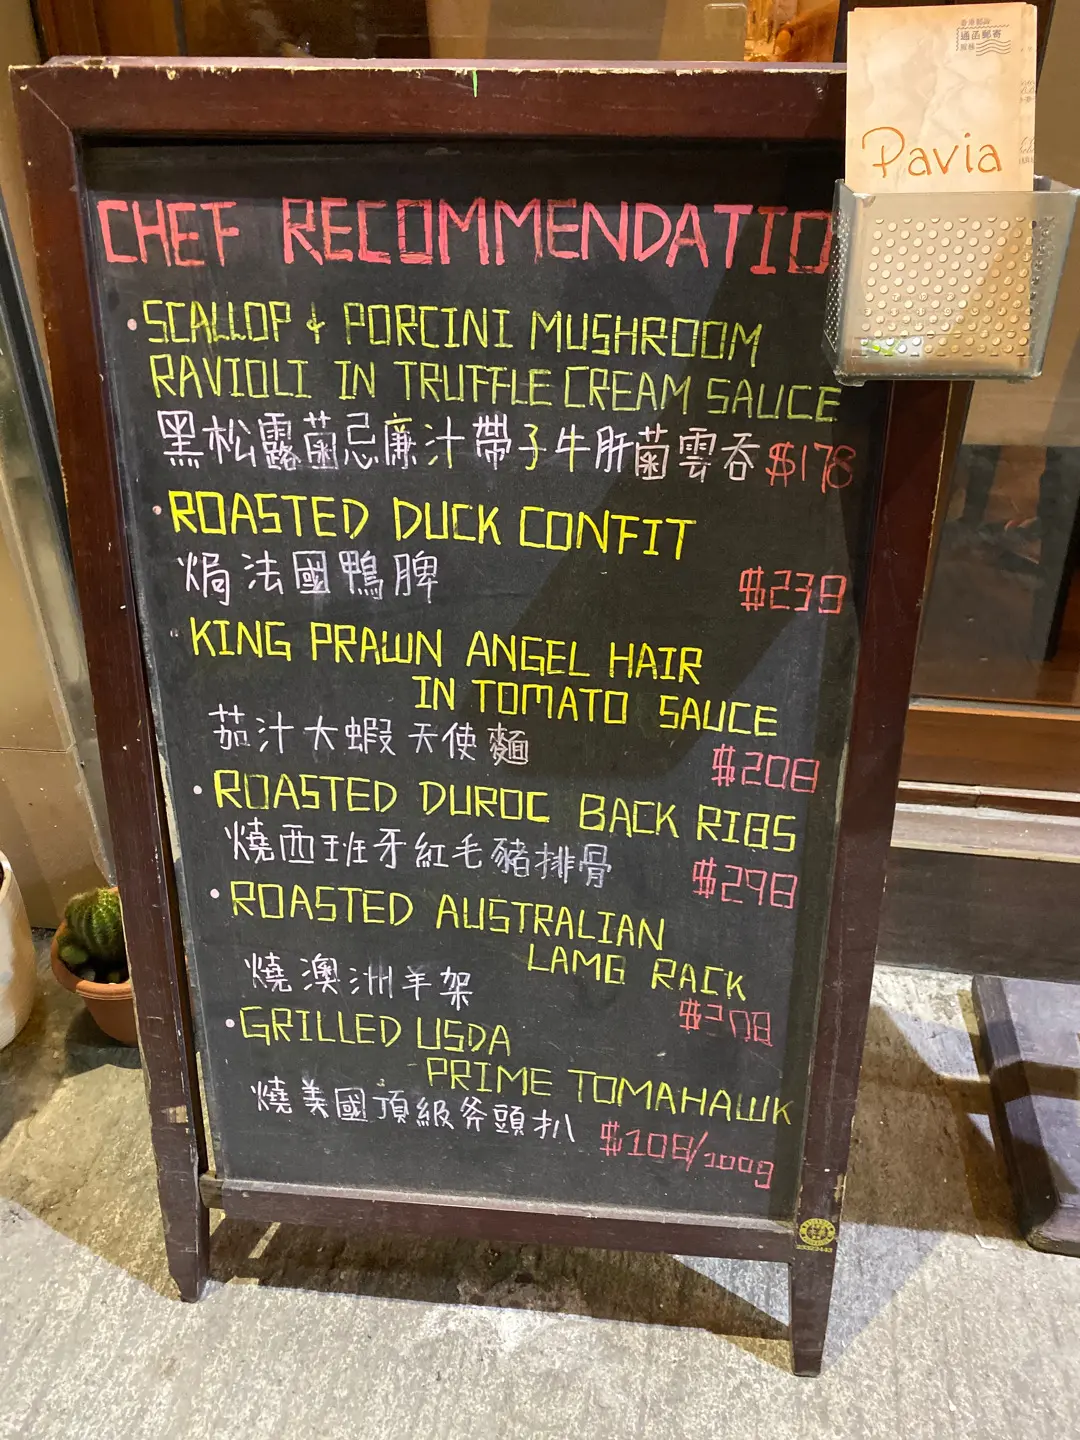 香港郵政
通函郵寄
Pavia
CHEF RECOMMENDATIO
• SCALLOP & PORCINI MUSHROOM
RAVIOLI IN TRUFFLE CREAM SAUCE
黑松露菌忌廉汁帶子牛肝菌雲吞 $178
• ROASTED DUCK CONFIT
焗法國鴨脾
$238
• KING PRAWN ANGEL HAIR
IN TOMATO SAUCE
茄汁大蝦天使麵
$208
• ROASTED DUROC BACK RIBS
燒西班牙紅毛豬排骨
$298
• ROASTED AUSTRALIAN
LAMB RACK
燒澳洲羊架
• GRILLED USDA
PRIME TOMAHAWK
燒美國頂級斧頭扒
$108/100g